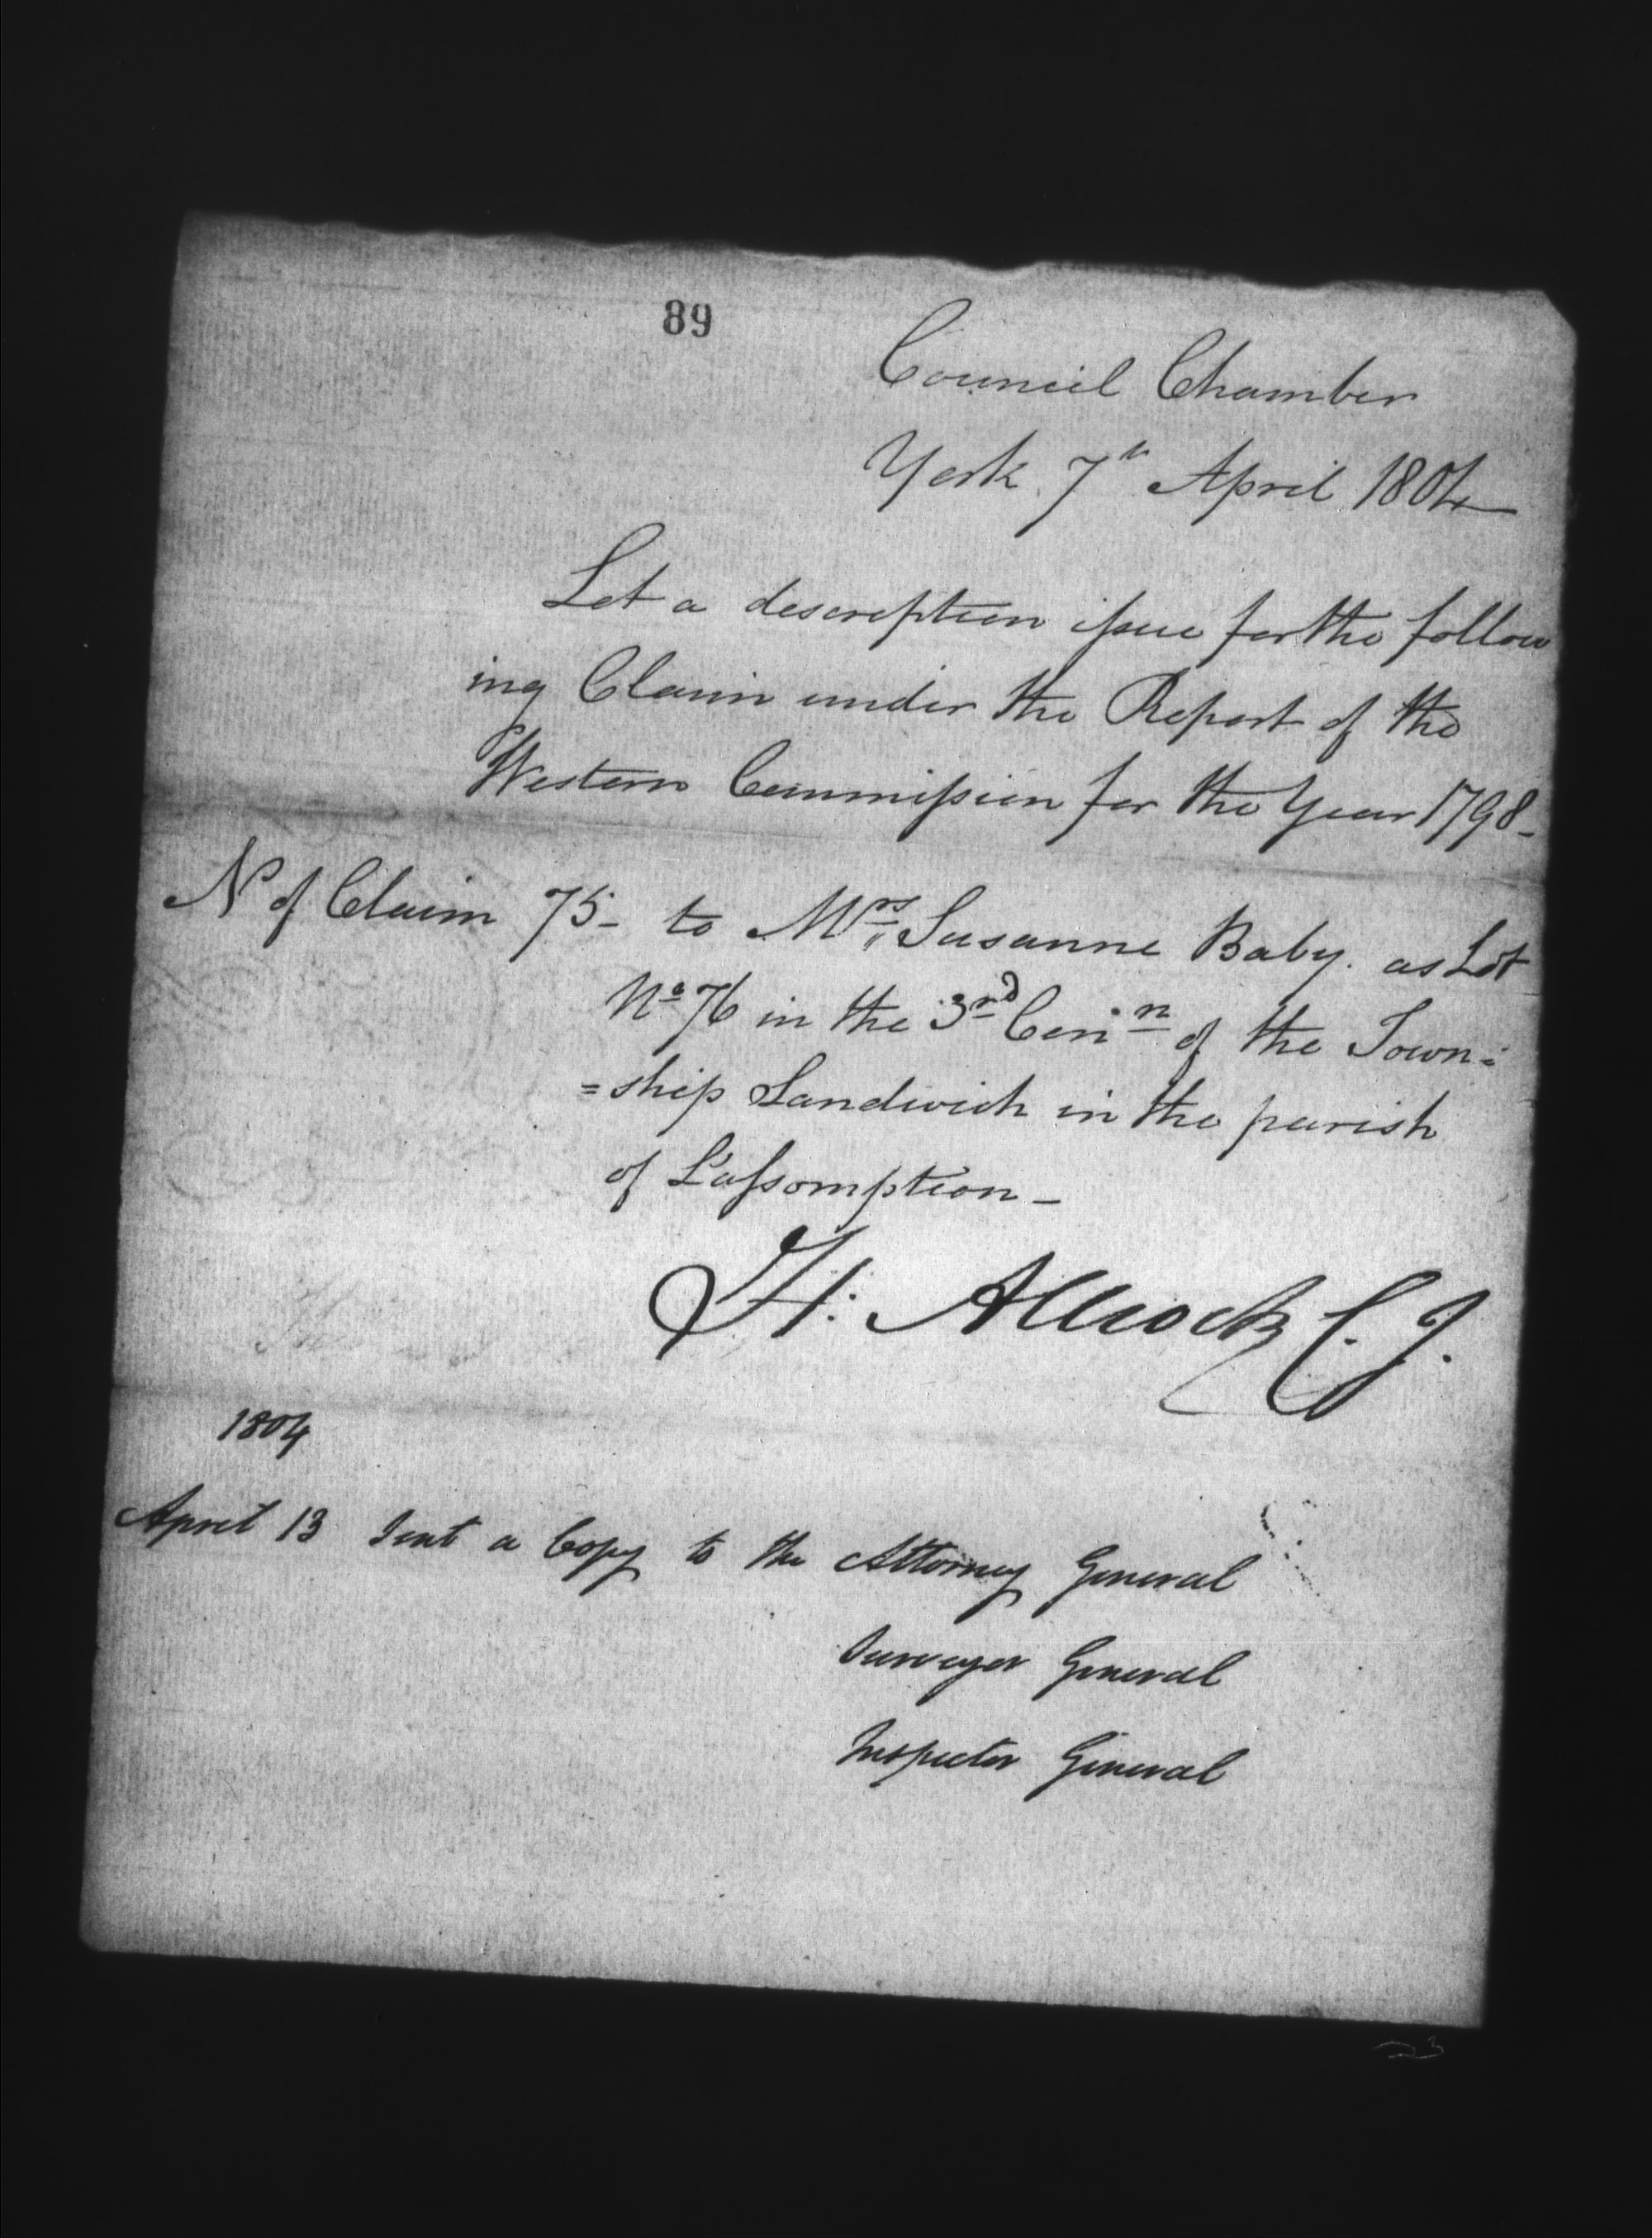 89
Council Chamber
York 7th April 1804
Let a description issue for the follow
ing Claim under the Report of the
Western Commission for the Year 1798-
No of Claim 75- to Mrs Susanne Baby. as Lot
No 76 in the 3rd Con:n of the Town=
=ship Sandwich in the parish
of L'assomption-
H: Allcock C.J.
1804
April 13 Sent a Copy to the Attorney General
Surveyor General
Inspector General